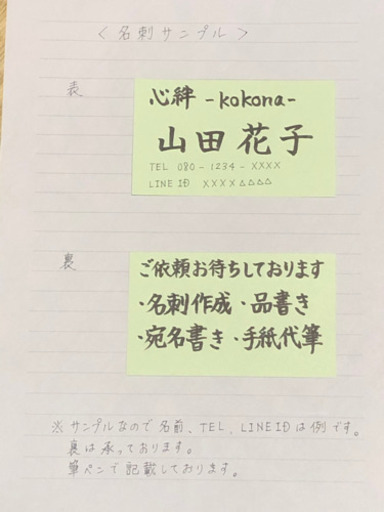 <名刺サンプル>
表
心絆 -kokona-
山田花子
TEL 080-1234-XXXX
LINE ID XXXX△△△△
裏
ご依頼お待ちしております
・名刺作成・品書き
・宛名書き・手紙代筆
※サンプルなので名前、TEL、LINE IDは例です。
裏は承っております。
筆ペンで記載しております。